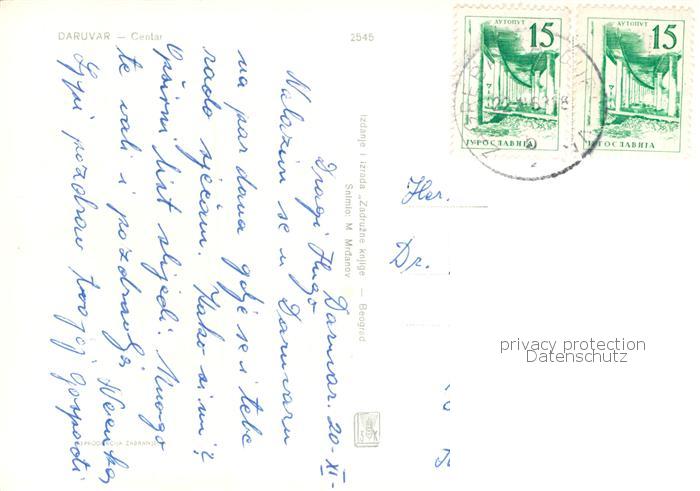 DARUVAR — Centar
2545
Daruvar. 20-XI-
Dragi Hugo
Nalazim se u Daruvaru
na par dana gdje se i tebe
rado sjećam. Kako si mi?
Opširni list slijedi. Mnogo
te voli i pozdravlja
Lijepi pozdrav tvojoj gospodji
Izdanje i izrada „Zadružne knjige — Beograd
Snimio: M. Mrđanov
REPRODUKCIJA ZABRANJENA
АУТОПУТ
15
ЈУГОСЛАВИЈА
АУТОПУТ
15
ЈУГОСЛАВИЈА
ZAGREB
Her.
Dr.
privacy protection
Datenschutz